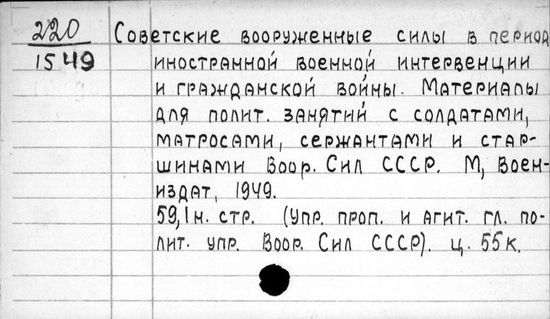 220
1549
Советские вооруженные силы в период
иностранной военной интервенции
и гражданской войны. Материалы
для полит. занятий с солдатами,
матросами, сержантами и стар-
шинами Воор. Сил СССР. М, Воен-
издат, 1949.
59,1н. стр. (Упр. проп. и агит. гл. по-
лит. упр. Воор. Сил СССР). ц. 55к.